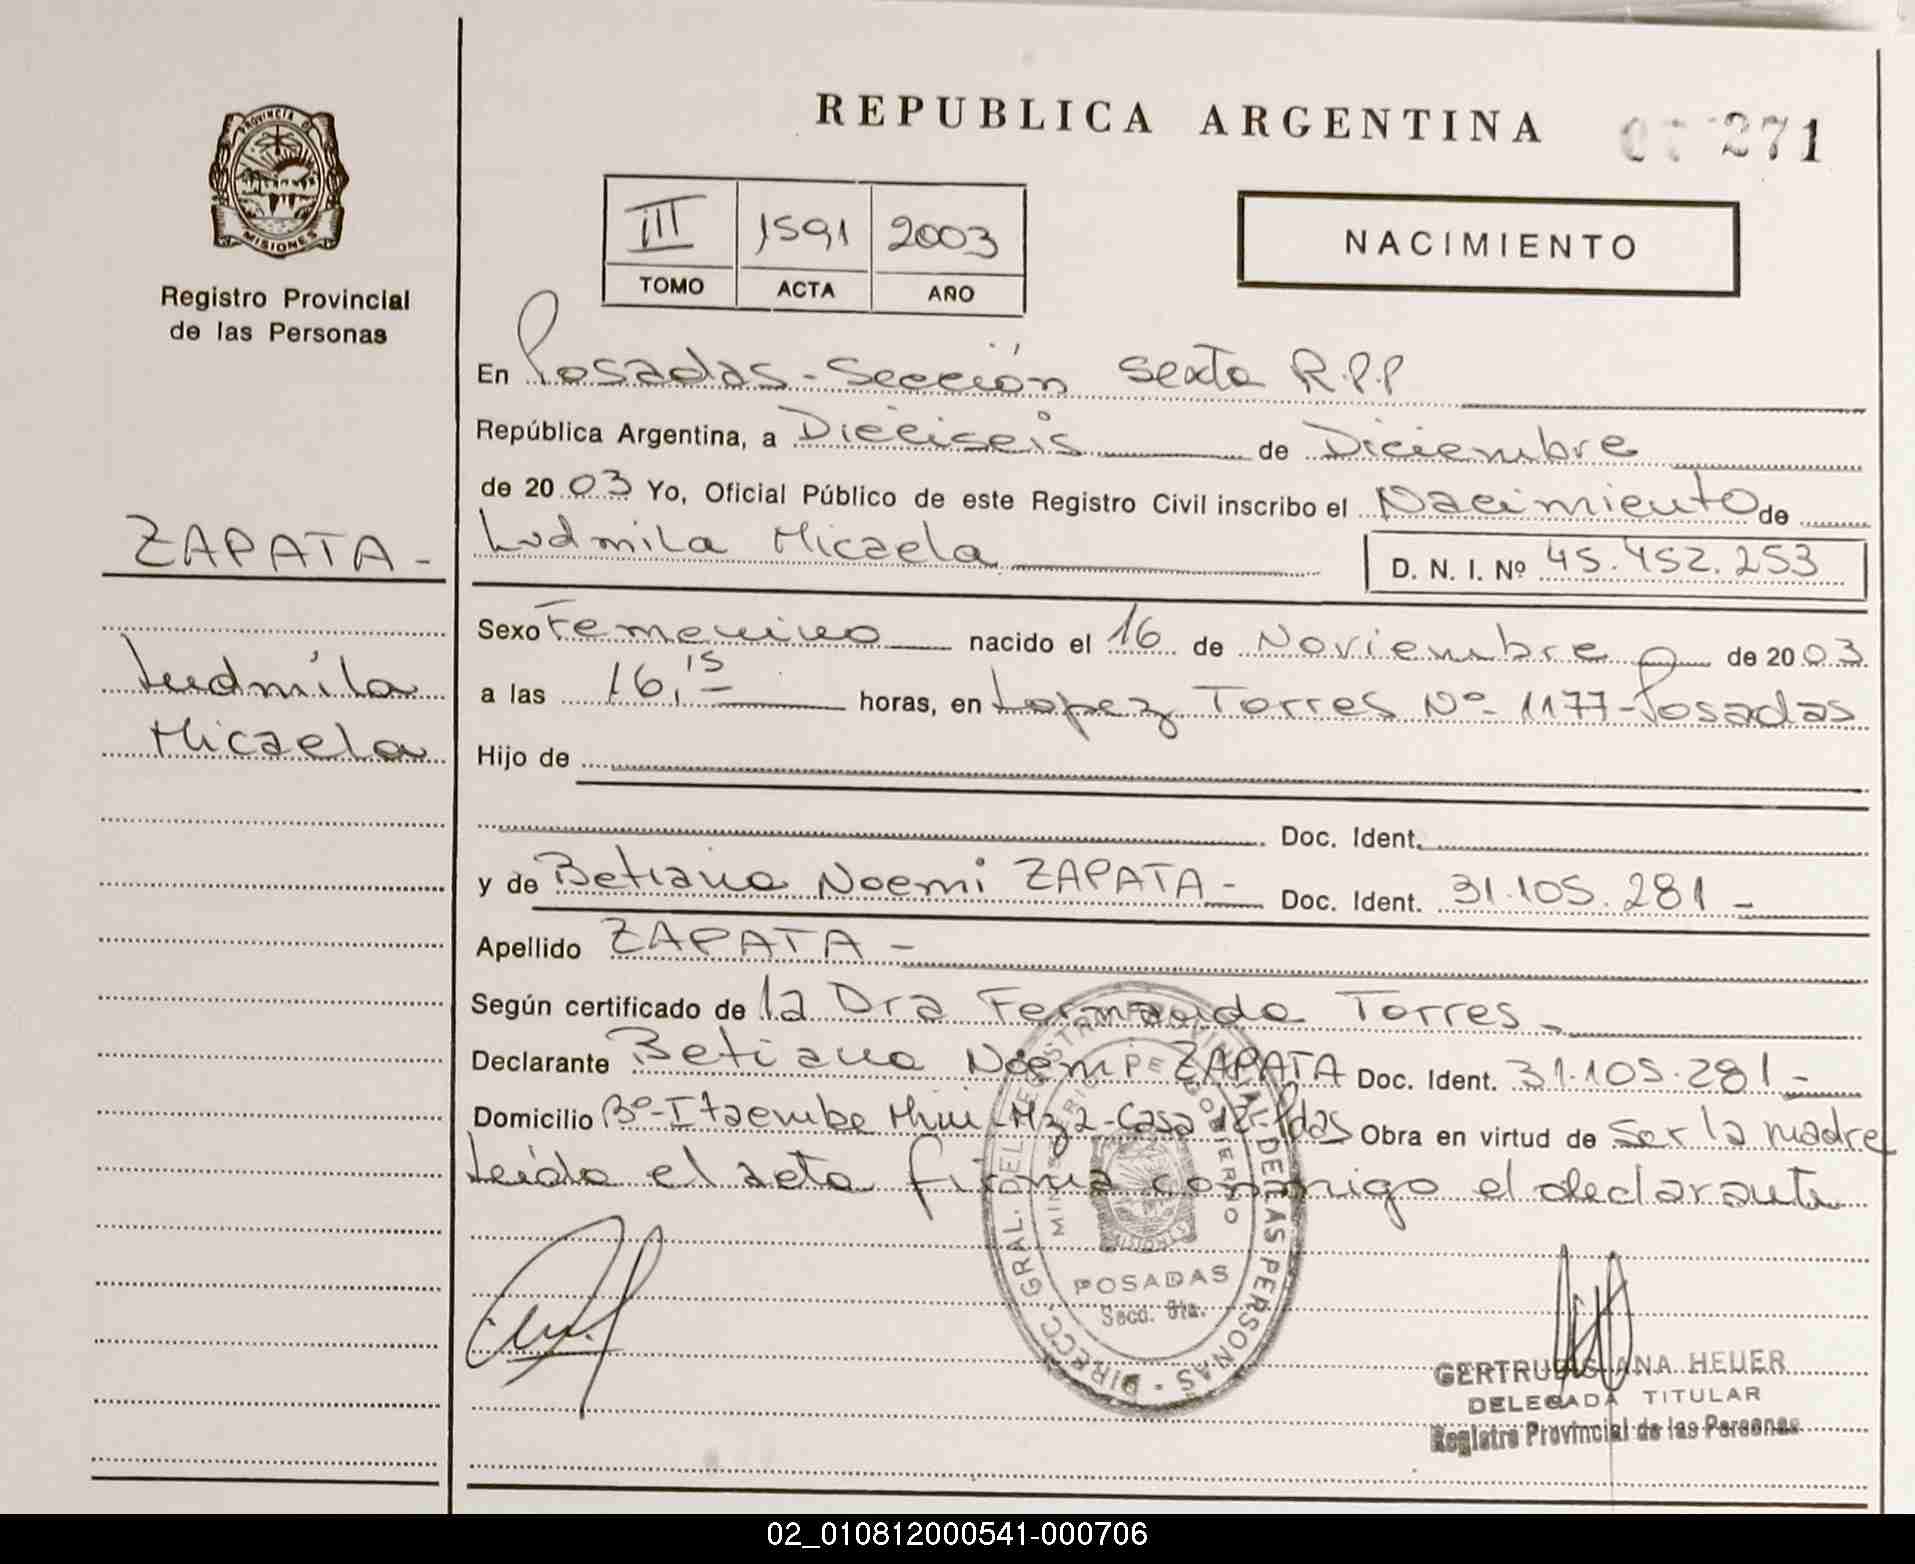 REPUBLICA ARGENTINA
271
PROVINCIA DE
MISIONES
Registro Provincial
de las Personas
III 1591 2003
TOMO ACTA AÑO
NACIMIENTO
En Posadas - Sección Sexta R.P.P
República Argentina, a Dieciseis de Diciembre
de 2003 Yo, Oficial Público de este Registro Civil inscribo el Nacimiento de
Ludmila Micaela D. N. I. Nº 45.452.253
ZAPATA -
Ludmila
Micaela
Sexo Femenino nacido el 16 de Noviembre de 2003
a las 16,15 horas, en Lopez Torres Nº 1177- Posadas
Hijo de
Doc. Ident.
y de Betiana Noemi ZAPATA - Doc. Ident. 31.105.281 -
Apellido ZAPATA -
Según certificado de la Dra Fernanda Torres -
Declarante Betiana Noemi ZAPATA Doc. Ident. 31.105.281 -
Domicilio Bº- Itaembe Mini - Mz 2 - Casa 12 - Pdas Obra en virtud de ser la madre
Leida el acta firma conmigo el declarante
DIRECC. GRAL. DEL REGISTRO PROVINCIAL DE LAS PERSONAS
MINISTERIO DE GOBIERNO
MISIONES
POSADAS
Secc. 6ta.
GERTRUDIS ANA HEUER
DELEGADA TITULAR
Registro Provincial de las Personas
02_010812000541-000706